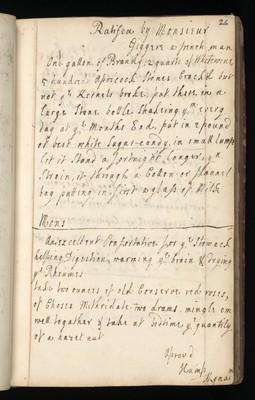 26
Ratifea by Monsieur
a french man
One gallon of Brandy, 2 quarts of Whitewine
5 hundred Apricock Stones Crack'd but
not yͤ Kernels broke, put them in a
large Stone bottle Shakeing yᵐ every
day at yͤ Months End, put in 2 pound
of best white Sugar-candy, in small lumps
let it Stand a fortnight longer, yⁿ
Strain it through a Cotton or flannel
bag puting in first a glass of Milk
Mons
An excellent Confortative for yͤ Stomach
helping Digestion, warming yͤ brain & Drying
yͤ Rheumes
take two ounces of old Conserve red roses,
of Choise Mithridate two drams. mingle em
well together & take at Bedtime yͤ quantity
of a hazel nut
Aprov'd
Hump